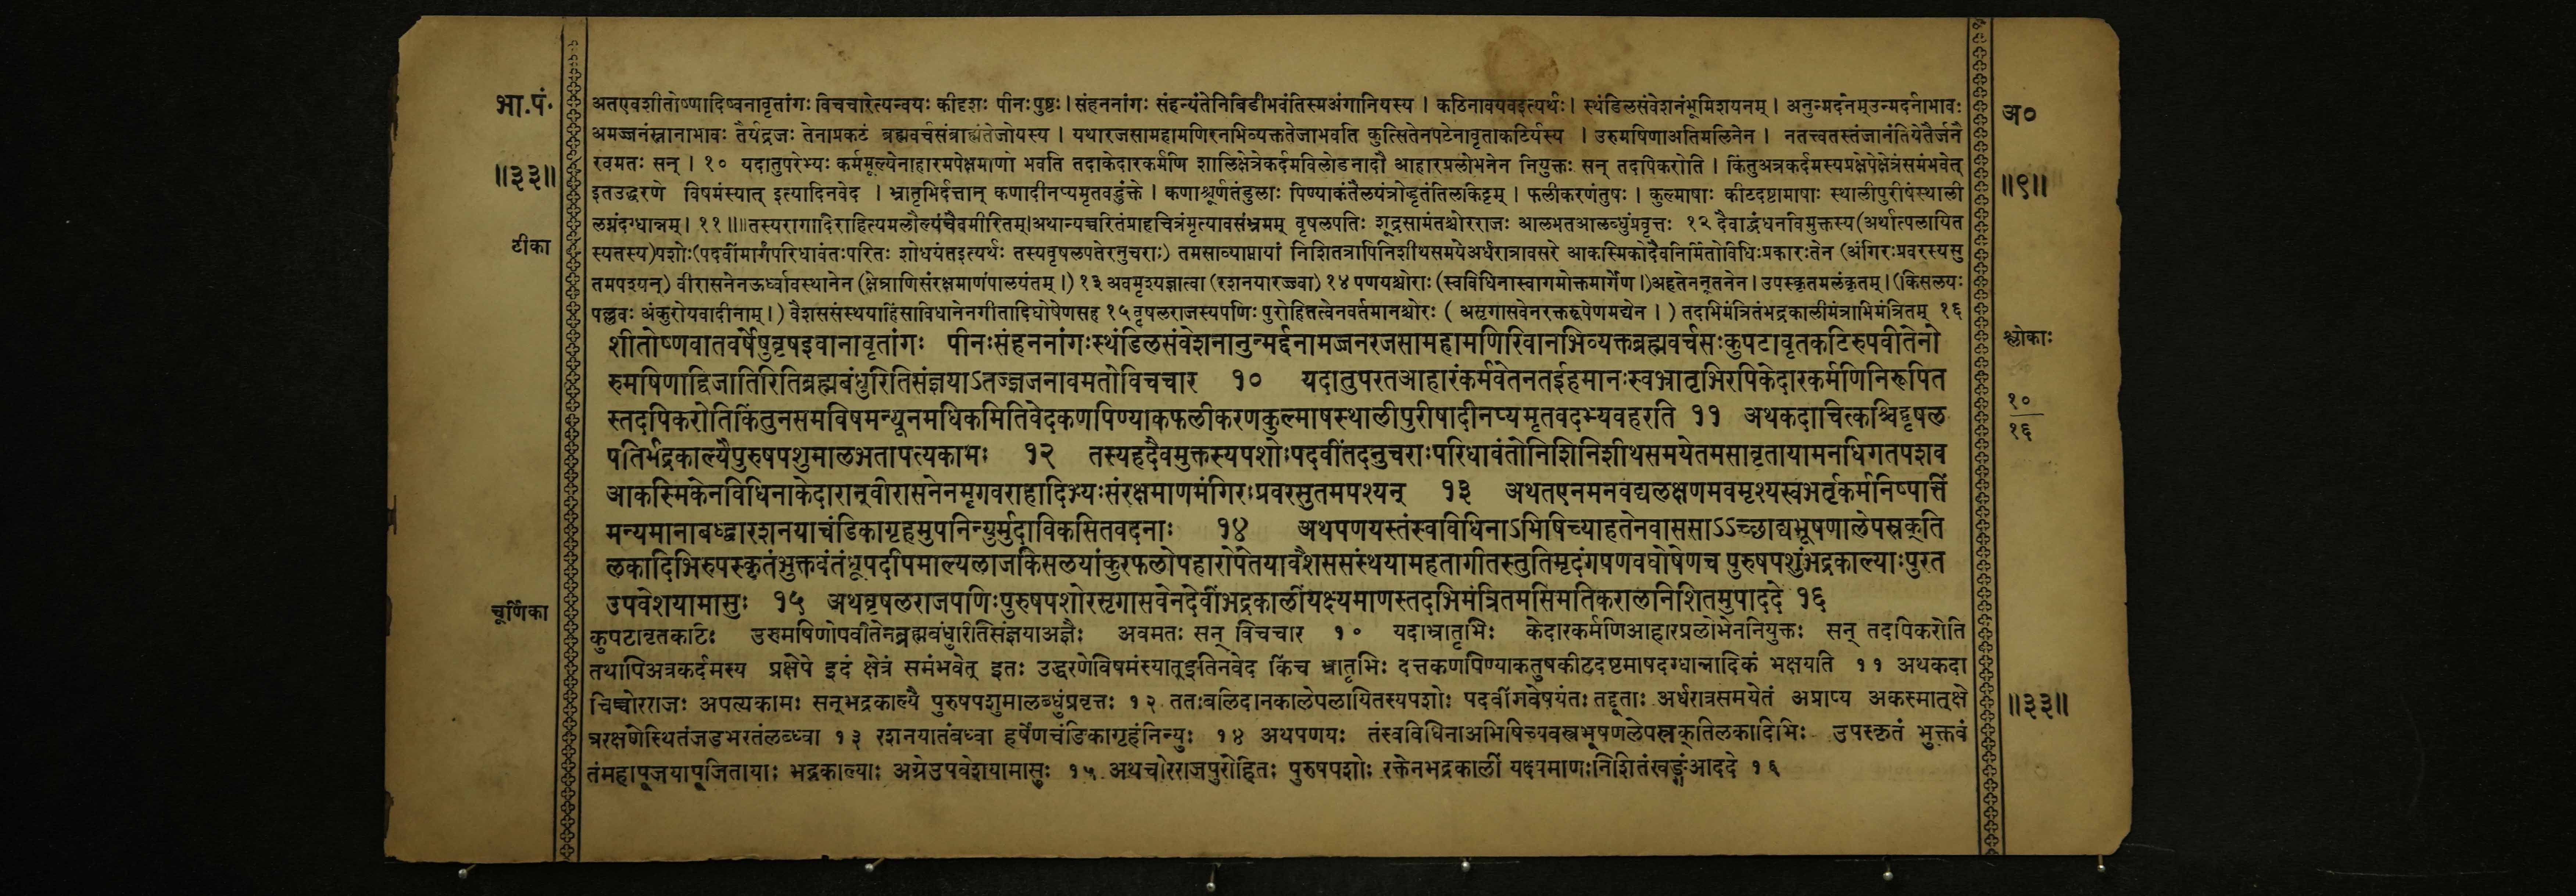 भा.पं.
॥३३॥
टीका
चूर्णिका
अ०
॥९॥
श्लोकाः
१०
१६
॥३३॥
अतएवशीतोष्णादिष्वनावृतांगः विचचारेत्यन्वयः कीदृशः पीनःपुष्टः।संहननांगः संहन्यंतेनिबिडीभवंतिस्मअंगानियस्य । कठिनावयवइत्यर्थः। स्थंडिलसंवेशनंभूमिशयनम् । अनुन्मर्दनम्उन्मर्दनाभावः
अमज्जनंस्नानाभावः तैर्यद्रजः तेनाप्रकटं ब्रह्मवर्चसंब्राह्मंतेजोयस्य । यथारजसामहामणिरनभिव्यक्ततेजाभवति कुत्सितेनपटेनावृताकटिर्यस्य । उरुमषिणाअतिमलिनेन । नतत्त्वतस्तंजानंतियेतैर्जनै
रवमतः सन् । १० यदातुपरेभ्यः कर्ममूल्येनाहारमपेक्षमाणो भवति तदाकेदारकर्मणि शालिक्षेत्रेकर्दमविलोडनादौ आहारप्रलोभनेन नियुक्तः सन् तदपिकरोति । किंतुअत्रकर्दमस्यप्रक्षेपेक्षेत्रंसमंभवेत्
इतउद्धरणे विषमंस्यात् इत्यादिनवेद । भ्रातृभिर्दत्तान् कणादीनप्यमृतवद्भुंक्ते । कणाश्चूर्णतंडुलाः पिण्याकंतैलयंत्रोद्धृतंतिलकिट्टम् । फलीकरणंतुषः । कुल्माषाः कीटदष्टामाषाः स्थालीपुरीषंस्थाली
लग्नंदग्धान्नम्। ११॥॥तस्यरागादिराहित्यमलौल्यंचैवमीरितम्।अथान्यच्चरितंप्राहचित्रंमृत्यावसंभ्रमम् वृषलपतिः शूद्रसामंतश्चोरराजः आलभतआलब्धुंप्रवृत्तः १२ दैवाद्बंधनविमुक्तस्य(अर्थात्पलायित
स्यतस्य)पशोः(पदवींमार्गंपरिधावंतःपरितः शोधयंतइत्यर्थः तस्यवृषलपतेरनुचराः) तमसाव्याप्तायां निशितत्रापिनिशीथसमयेअर्धरात्रावसरे आकस्मिकोदैवनिर्मितोविधिःप्रकारःतेन (अंगिरःप्रवरस्यसु
तमपश्यन्) वीरासनेनऊर्ध्वावस्थानेन (क्षेत्राणिसंरक्षमाणंपालयंतम्।) १३ अवमृश्यज्ञात्वा (रशनयारज्ज्वा) १४ पणयश्चोराः (स्वविधिनास्वागमोक्तमार्गेण।)अहतेननूतनेन।उपस्कृतमलंकृतम्।(किसलयः
पल्लवः अंकुरोयवादीनाम्।) वैशससंस्थयाहिंसाविधानेनगीतादिघोषेणसह १५वृषलराजस्यपणिः पुरोहितत्वेनवर्तमानश्चोरः ( असृगासवेनरक्तरूपेणमद्येन । ) तदभिमंत्रितंभद्रकालीमंत्राभिमंत्रितम् १६
शीतोष्णवातवर्षेषुवृषइवानावृतांगः पीनःसंहननांगःस्थंडिलसंवेशनानुन्मर्द्दनामज्जनरजसामहामणिरिवानभिव्यक्तब्रह्मवर्चसःकुपटावृतकटिरुपवीतेनो
रुमषिणाद्विजातिरितिब्रह्मबंधुरितिसंज्ञयाऽतज्ज्ञजनावमतोविचचार १० यदातुपरतआहारंकर्मवेतनतईहमानःस्वभ्रातृभिरपिकेदारकर्मणिनिरूपित
स्तदपिकरोतिकिंतुनसमविषमन्यूनमधिकमितिवेदकणपिण्याकफलीकरणकुल्माषस्थालीपुरीषादीनप्यमृतवदभ्यवहरति ११ अथकदाचित्कश्चिद्वृषल
पतिर्भद्रकाल्यैपुरुषपशुमालभतापत्यकामः १२ तस्यहदैवमुक्तस्यपशोःपदवींतदनुचराःपरिधावंतोनिशिनिशीथसमयेतमसावृतायामनधिगतपशव
आकस्मिकेनविधिनाकेदारान्वीरासनेनमृगवराहादिभ्यःसंरक्षमाणमंगिरःप्रवरसुतमपश्यन् १३ अथतएनमनवद्यलक्षणमवमृश्यस्वभर्तृकर्मनिष्पत्तिं
मन्यमानाबध्द्वारशनयाचंडिकागृहमुपनिन्युर्मुदाविकसितवदनाः १४ अथपणयस्तंस्वविधिनाऽभिषिच्याहतेनवाससाऽऽच्छाद्यभूषणालेपस्रक्ति
लकादिभिरुपस्कृतंभुक्तवंतंधूपदीपमाल्यलाजकिसलयांकुरफलोपहारोपेतयावैशससंस्थयामहतागीतस्तुतिमृदंगपणवघोषेणच पुरुषपशुंभद्रकाल्याःपुरत
उपवेशयामासुः १५ अथवृषलराजपणिःपुरुषपशोरसृगासवेनदेवींभद्रकालींयक्ष्यमाणस्तदभिमंत्रितमसिमतिकरालनिशितमुपाददे १६
कुपटावृतकटिः उरुमषिणोपवीतेनब्रह्मबंधुरितिसंज्ञयाअज्ञैः अवमतः सन् विचचार १० यदाभ्रातृभिः केदारकर्मणिआहारप्रलोभेननियुक्तः सन् तदपिकरोति
तथापिअत्रकर्दमस्य प्रक्षेपे इदं क्षेत्रं समंभवेत् इतः उद्धरणेविषमंस्यात्इतिनवेद किंच भ्रातृभिः दत्तकणपिण्याकतुषकीटदष्टमाषदग्धान्नादिकं भक्षयति ११ अथकदा
चिच्चोरराजः अपत्यकामः सन्भद्रकाल्यै पुरुषपशुमालब्धुंप्रवृत्तः १२ ततःबलिदानकालेपलायितस्यपशोः पदवींगवेषयंतः तद्दूताः अर्धरात्रसमयेतं अप्राप्य अकस्मात्क्षे
त्ररक्षणेस्थितंजडभरतंलब्ध्वा १३ रशनयातंबध्वा हर्षेणचंडिकागृहंनिन्युः १४ अथपणयः तंस्वविधिनाअभिषिच्यवस्त्रभूषणलेपस्रक्तिलकादिभिः उपस्कृतं भुक्तवं
तंमहापूजयापूजितायाः भद्रकाल्याः अग्रेउपवेशयामासुः १५ अथचोरराजपुरोहितः पुरुषपशोः रक्तेनभद्रकालीं यक्ष्यमाणःनिशितंखड्गंआददे १६